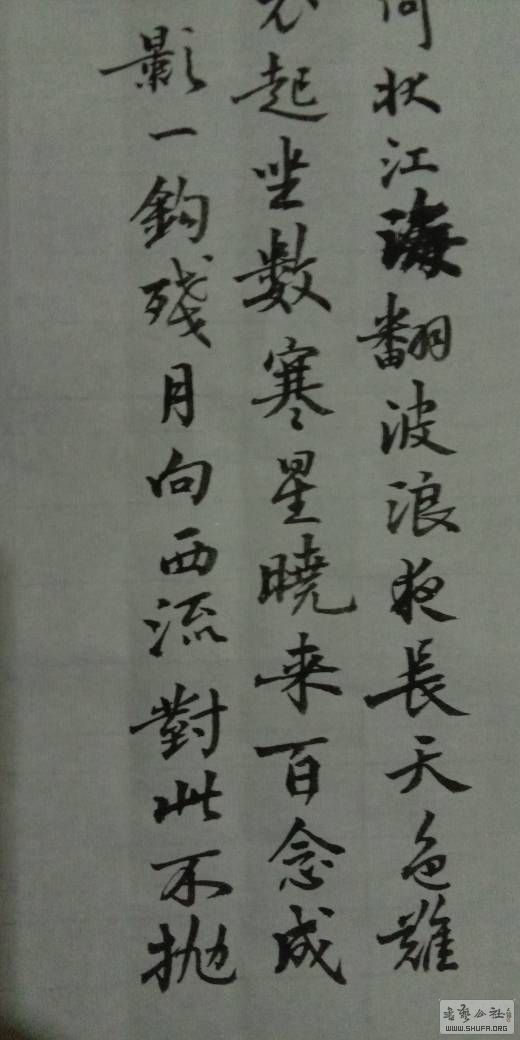 何状江海翻波浪夜長天色難
衣起坐數寒星曉来百念成
影一鈎殘月向西流對此不抛
書藝公社
WWW.SHUFA.ORG